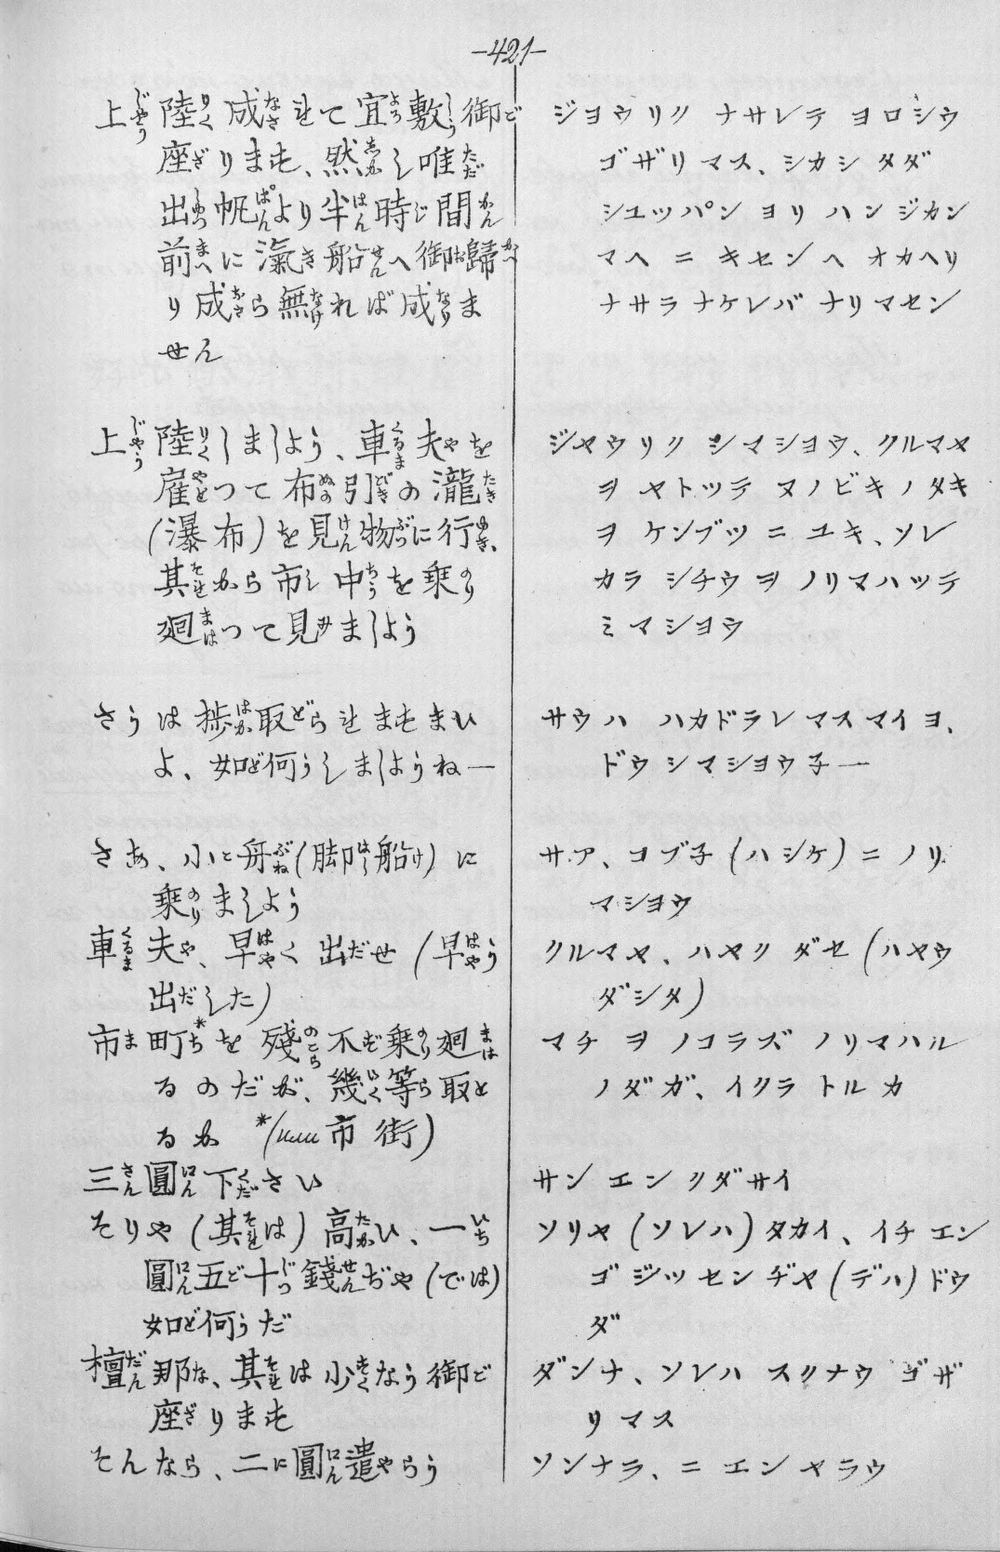 -421-
上陸成されて宜敷御
座ります、然し唯
出帆より半時間
前に滊船へ御歸
り成ら無れば成ま
せん
上陸しましよう、車夫を
雇つて布引の瀧
(瀑布)を見物に行、
其から市中を乗
廻つて見ましよう
さうは捗取られますまい
よ、如何しましようねー
さあ、小舟(脚船)に
乗ましよう
車夫、早く出せ(早
出した)
市町*を殘不乗廻
るのだが、幾等取
るか *(市街)
三圓下さい
そりや(其は)高い、一
圓五十錢ぢや(では)
如何だ
檀那、其は少なう御
座ります
そんなら、二圓遣らう
ジヨウリク ナサレテ ヨロシウ
ゴザリマス、シカシ タダ
シユッパン ヨリ ハンジカン
マヘ ニ キセン ヘ オカヘリ
ナサラナケレバ ナリマセン
ジヤウリク シマシヨウ、クルマヤ
ヲ ヤトッテ ヌノビキノタキ
ヲ ケンブツ ニ ユキ、ソレ
カラ シチウ ヲ ノリマハッテ
ミマシヨウ
サウハ ハカドラレマスマイヨ、
ドウシマシヨウ子ー
サア、コブ子(ハシケ)ニ ノリ
マシヨウ
クルマヤ、ハヤク ダセ(ハヤウ
ダシタ)
マチ ヲ ノコラズ ノリマハル
ノダガ、イクラ トルカ
サン エン クダサイ
ソリヤ(ソレハ)タカイ、イチエン
ゴジッセンヂヤ(デハ)ドウ
ダ
ダンナ、ソレハ スクナウ ゴザ
リマス
ソンナラ、ニ エン ヤラウ